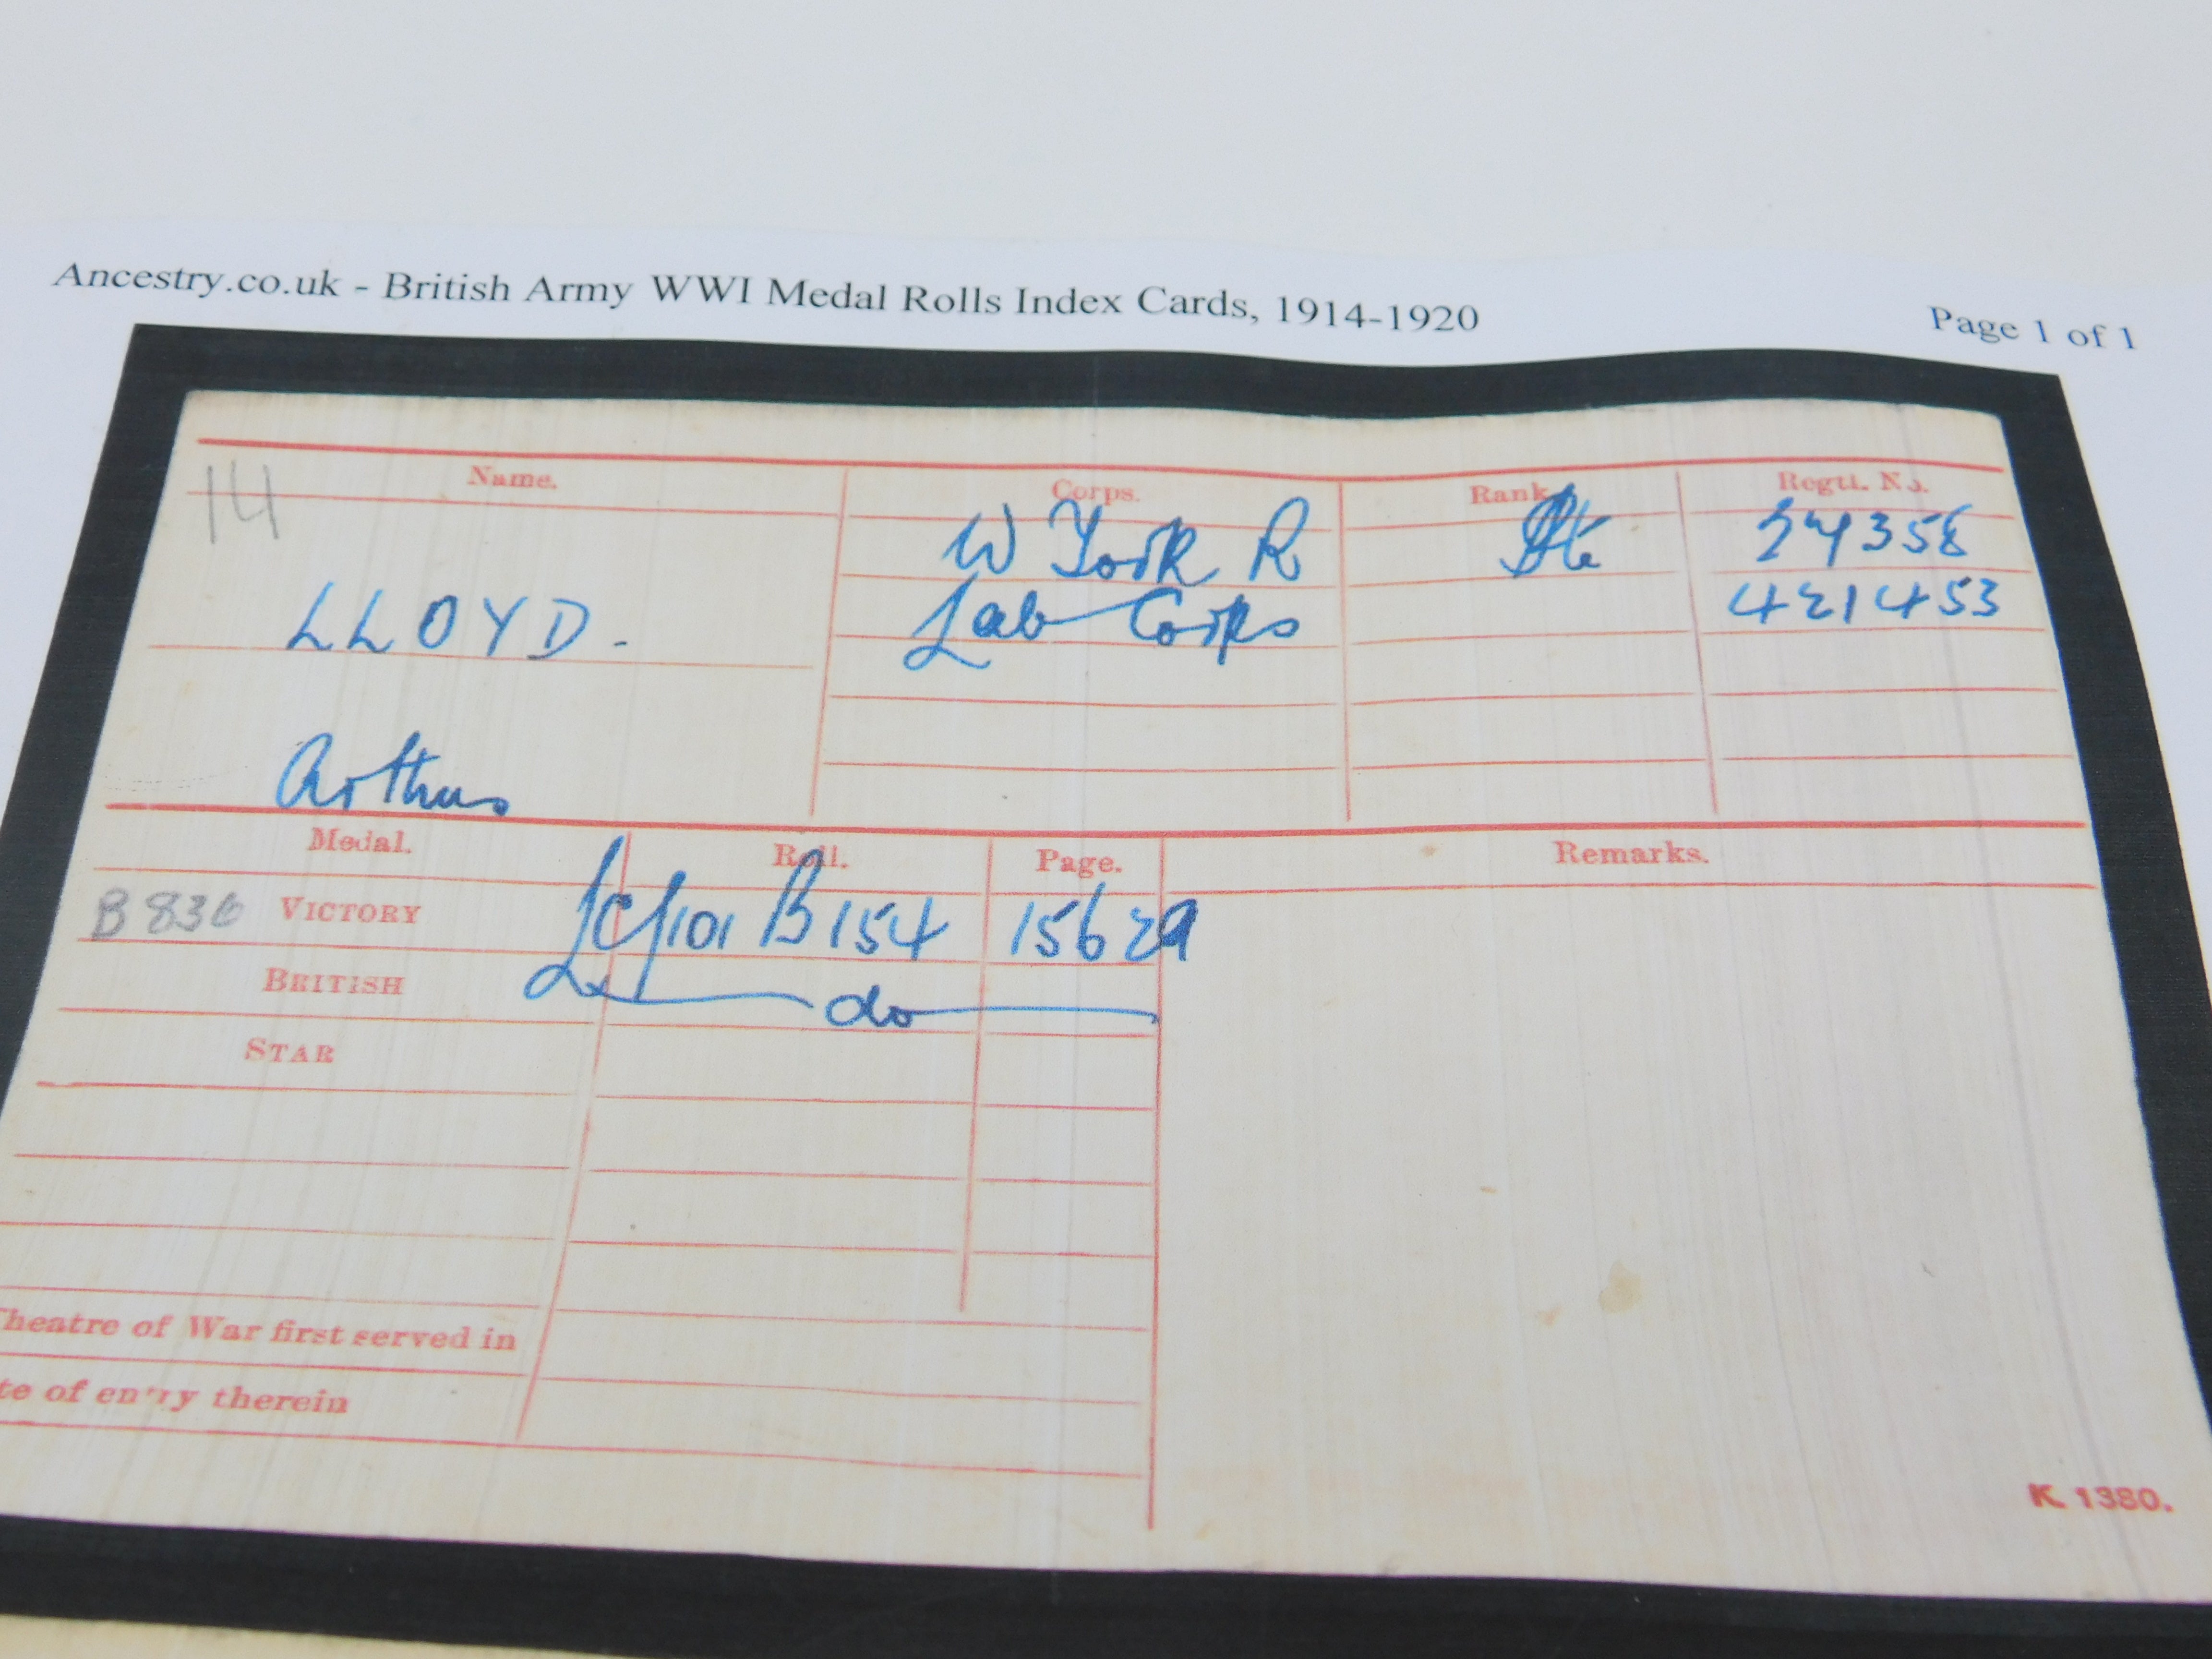 Ancestry.co.uk - British Army WWI Medal Rolls Index Cards, 1914-1920
Page 1 of 1
14
Name.
Corps.
Rank.
Regtl. No.
W York R
Pte
LLOYD.
Lab Corps
421453
Arthur
Medal.
Roll.
Page.
Remarks.
B 836 VICTORY
101 B 154
15629
BRITISH
do
STAR
heatre of War first served in
te of entry therein
K. 1380.